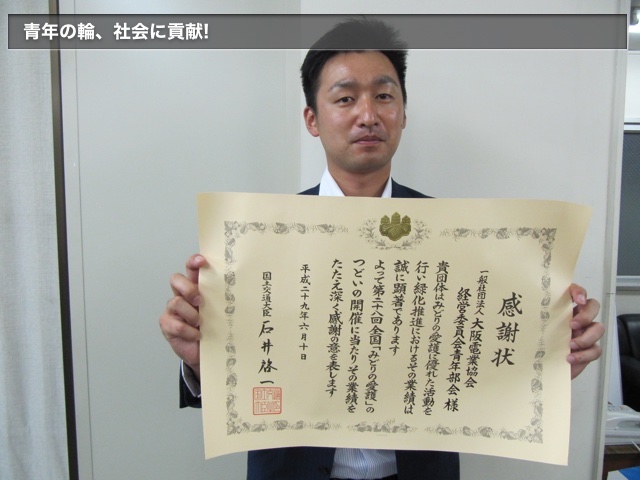 青年の輪、社会に貢献!
感謝状
一般社団法人 大阪電業協会
経営委員会青年部会 様
貴団体はみどりの愛護に優れた活動を
行い緑化推進におけるその業績は
誠に顕著であります
よって第二十八回全国「みどりの愛護」の
つどいの開催に当たりその業績を
たたえ深く感謝の意を表します
平成二十九年六月十日
国土交通大臣 石井啓一